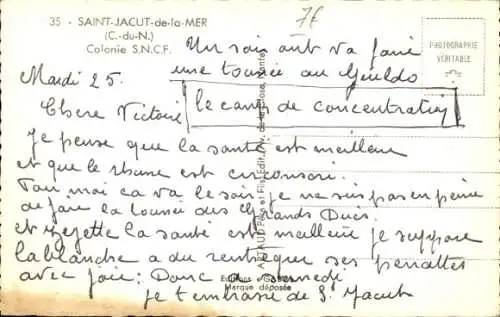 35 - SAINT-JACUT-de-la-MER
(C.-du-N.)
Colonie S.N.C.F.
7F
PHOTOGRAPHIE
VÉRITABLE
Un soir ont va faire
une tournée au Guildo
Mardi 25.
le camp de concentration
Chere Victoire
Je pense que la santé est meilleure
et que le rhume est
moi ca va le soir je ne suis pas en peine
de faire la tournée des Grands Ducs.
et la santé est meilleure je suppose
la blanche a du ses penattes
avec joie: Donc a samedi
je t'embrasse de S. Jacut
Marque déposée